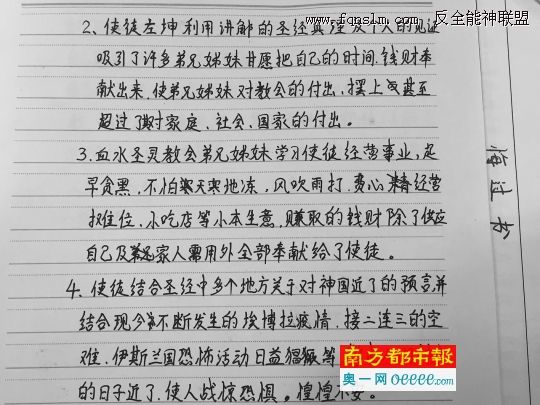 www.fqnslm.com 反全能神联盟
2、使徒左坤利用讲解的圣经真理及个人的见证
吸引了许多弟兄姊妹甘愿把自己的时间、钱财奉
献出来,使弟兄姊妹对教会的付出、摆上 甚至
超过了对家庭、社会、国家的付出。
3、血水圣灵教会弟兄姊妹学习使徒经营事业,起
早贪黑,不怕寒天寒地冻,风吹雨打,费心 精经营
报住位、小吃店等小本生意,赚取的钱财除了供应
自己及 家人需用外全部奉献给了使徒。
4、使徒结合圣经中多个地方关于对神国近了的预言,并
结合现今 不断发生的埃博拉疫情,接二连三的空
难,伊斯兰国恐怖活动日益猖獗等
的日子近了,使人战惊恐惧。惶惶不安。
悔过书
南方都市报
奥一网 oeeee.com